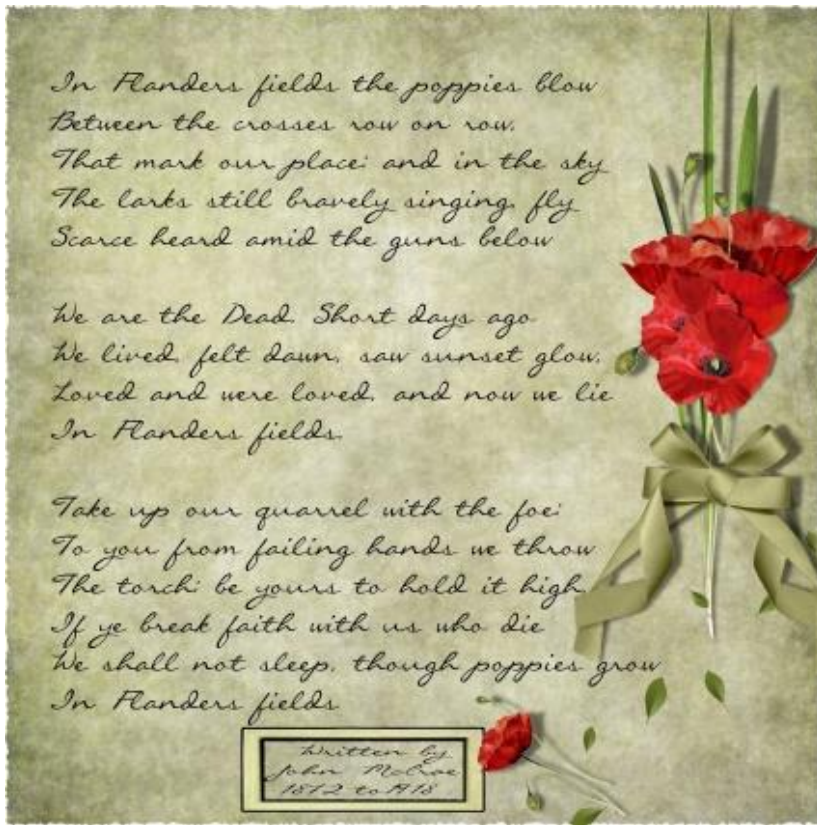 In Flanders fields the poppies blow
Between the crosses row on row,
That mark our place; and in the sky
The larks still bravely singing, fly
Scarce heard amid the guns below
We are the Dead. Short days ago
We lived, felt dawn, saw sunset glow,
Loved and were loved, and now we lie
In Flanders fields.
Take up our quarrel with the foe:
To you from failing hands we throw
The torch; be yours to hold it high.
If ye break faith with us who die
We shall not sleep, though poppies grow
In Flanders fields
Written by
John McCrae
1872 to 1918